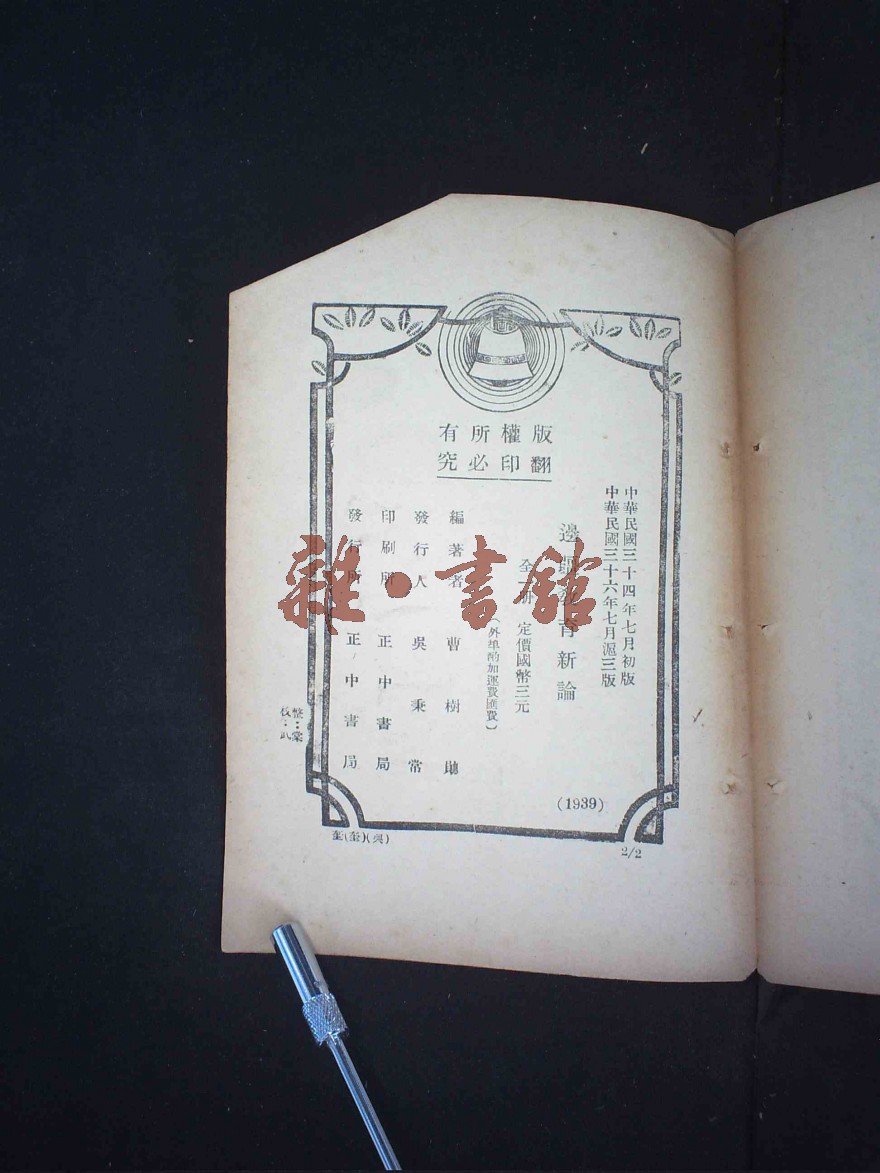 版權所有
翻印必究
中華民國三十四年七月初版
中華民國三十六年七月滬三版
邊疆教育新論
全一册 定價國幣三元
(外埠酌加運費匯費)
編著者 曹樹勛
發行人 吳秉常
印刷所 正中書局
發行所 正中書局
(1939)
整：棠
校：武
2/2
雜·書館